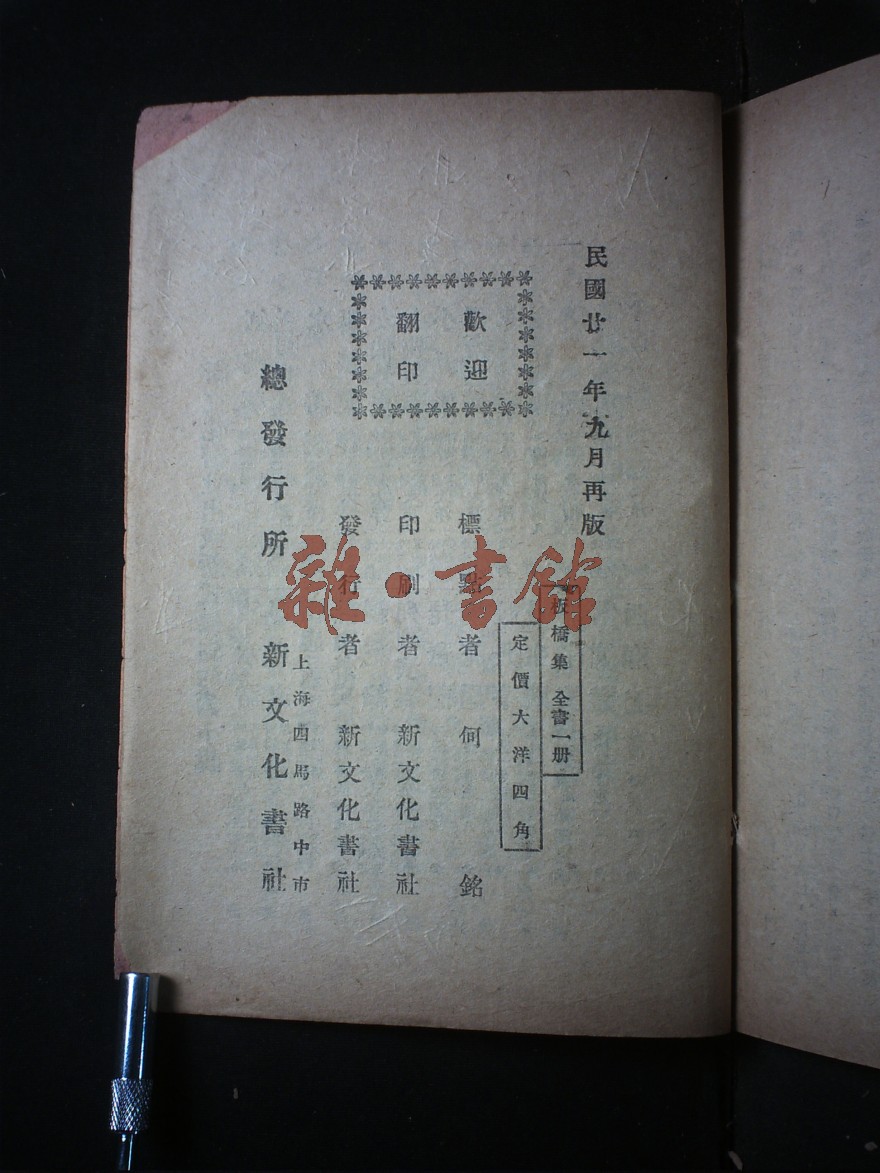 民國廿一年九月再版
板橋集 全書一册
定價大洋四角
歡迎
翻印
標點者 何銘
印刷者 新文化書社
發行者 新文化書社
上海四馬路中市
總發行所 新文化書社
雜·書館